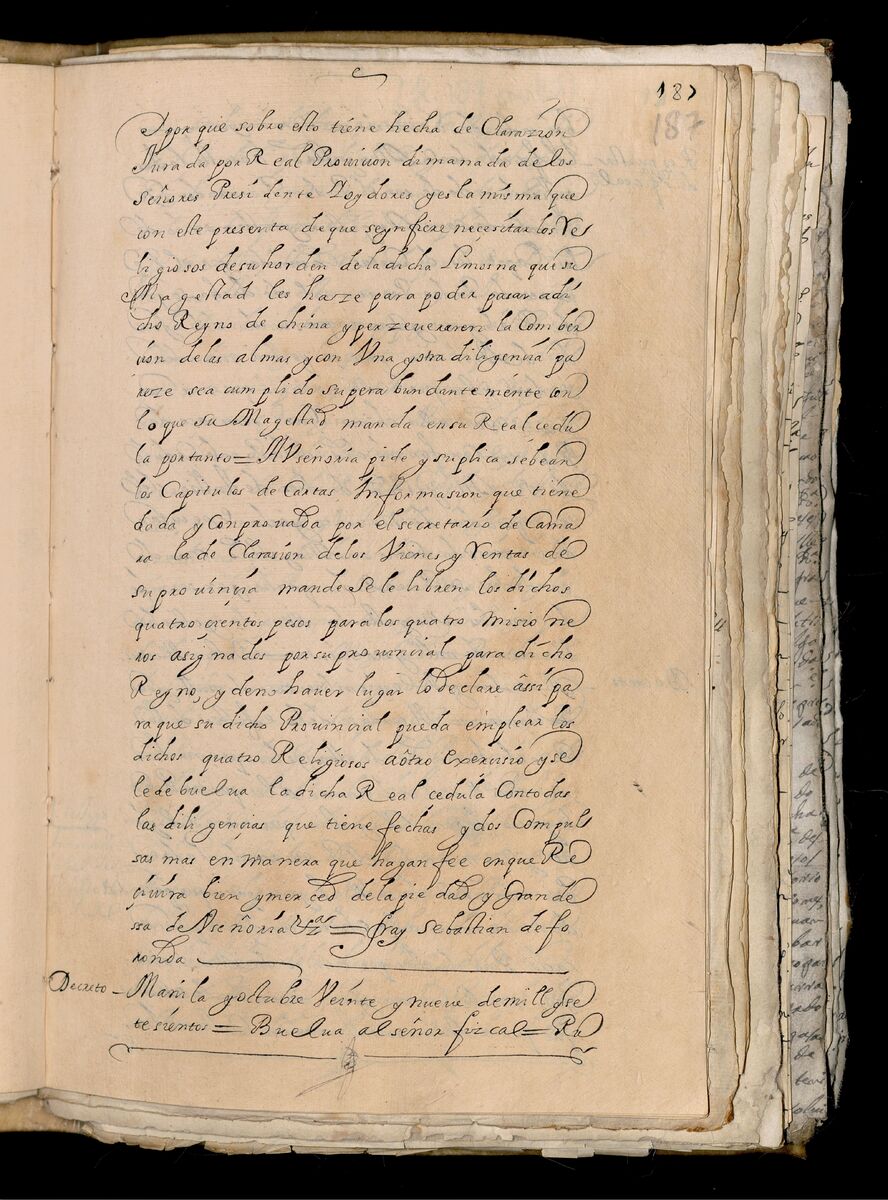 187
187
Y por que sobre esto tiene hecha de Clarazion
Jurada por Real Provicion dimanada de los
Señores Presidente Yoydores yes la misma que
con este presenta de que seynfiere neçesitar los Re
ligiosos desu horden de la dicha Limosna que su
Magestad les haze para poder pasar adi
cho Reyno de china y perzeveraren la Comber
cion delas almas y con Una yotra diligencia pa
reze sea cumplido superabundantemente con
lo que su Magestad manda en su Real cedu
la portanto = AVseñoria pide y suplica sebean
los Capitulos de Cartas Informasion que tiene
dada y Conprovada por el secretario de Cama
ra la de Clarasion delos Vienes y Rentas de
su provinçia mande Se le libren los dichos
quatroçientos pesos para los quatro misione
ros asignados por su provincial para dicho
Reyno, y deno haver lugar lo declare assi pa
ra que su dicho Provincial pueda emplear los
dichos quatro Religiosos a otro exersisio y se
le debuelua la dicha Real cedula Contodas
las diligençias que tiene fechas y dos Compul
sas mas en manera que hagan fee en que Re
çivira bien y merçed de la piedad y Grande
ssa de Vseñoria = fray Sebastian de fo
ronda
Decreto - Manila yoctubre Veinte y nueve demill y se
tesientos = Buelua al señor fizcal = Ru